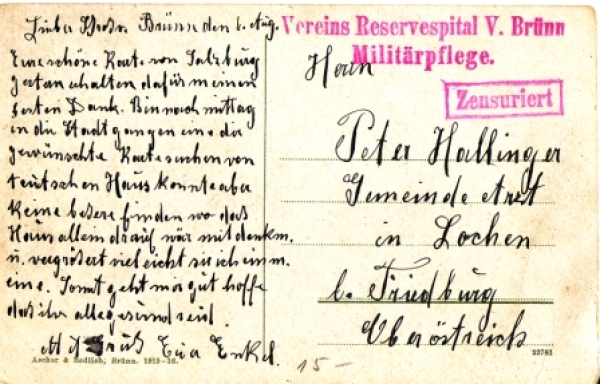 Lieber Brünn den 6. Aug.
Eure schöne Karte von Salzburg
gestan erhalten dafür meinen
besten Dank. Bin nachmittag
in die Stadt gangen eine die
gewünschte Karte suchen von
teutschen Haus konnte aber
keine besere finden wo das
Haus allein drauf wär mit denkm.
u. vergrösert vieleicht sie ich
eine. Sonst geht mir gut hoffe
das ihr alle gesund seid.
Mit Gruß Enkel.
Ascher & Redlich, Brünn. 1915-16.
Vereins Reservespital V. Brünn
Militärpflege.
Zensuriert
Herrn
Peter Hallinger
Gemeinde Arzt
in Lochen
b. Friedburg
Oberöstreich
23761
15-